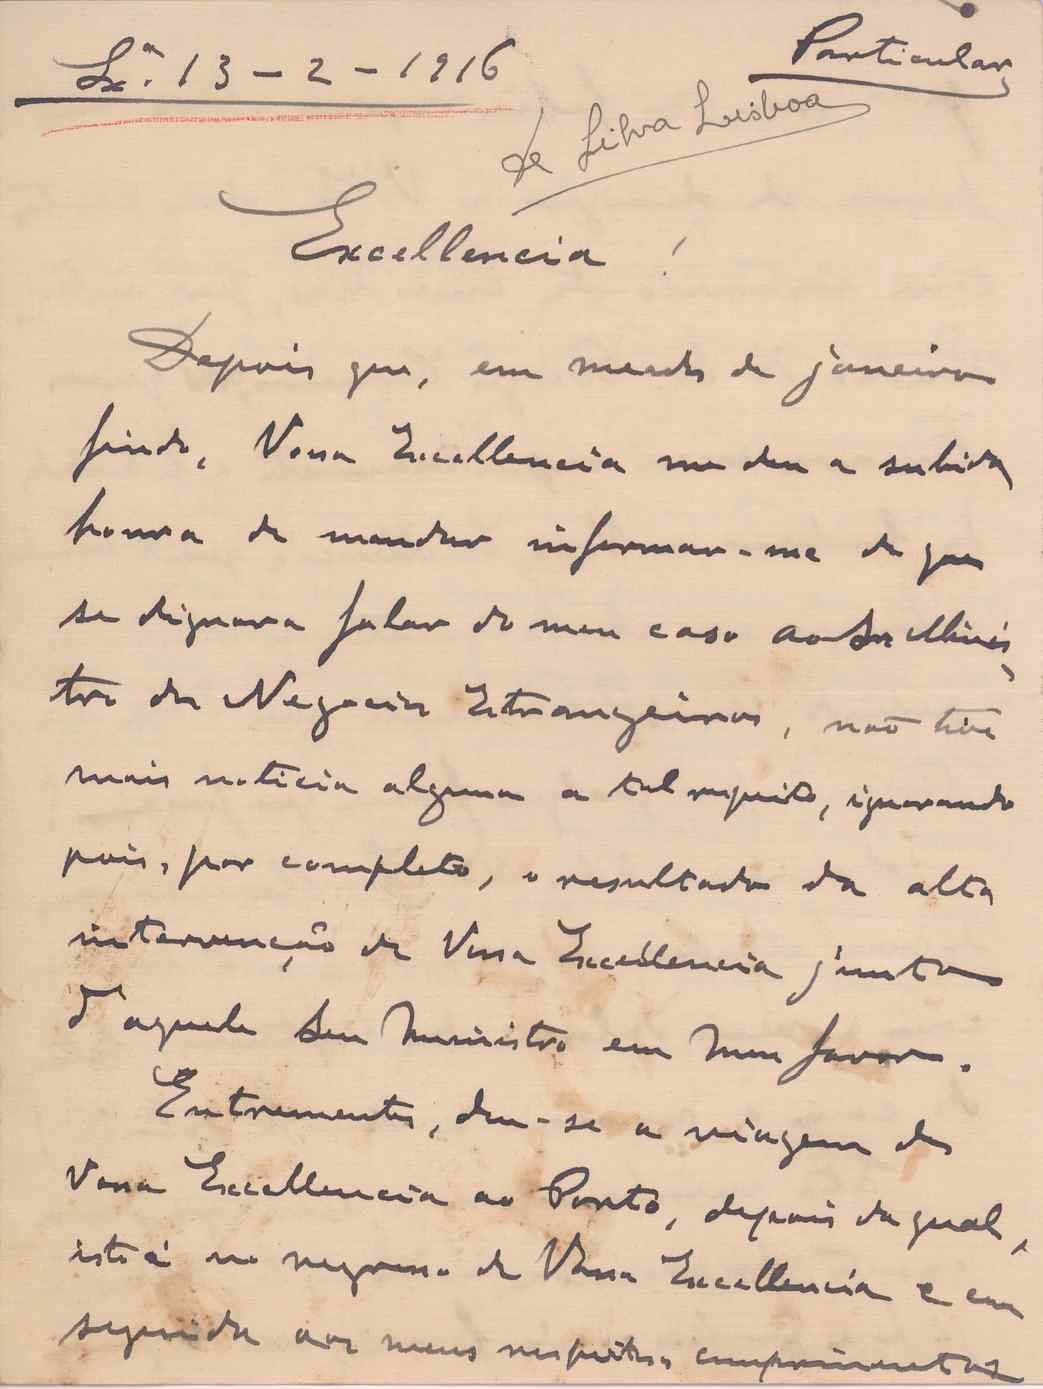 Lxª. 13-2-1916
Particular
de Silva Lisboa
Excellencia !
Depois que, em meados de janeiro
findo, Vossa Excellencia me deu a subida
honra de mandar informar-me de que
se dignara falar do meu caso ao Sr Minis-
tro dos Negocios Estrangeiros, não tive
mais noticia alguma a tal respeito, ignorando
pois, por completo, o resultado da alta
intervenção de Vossa Excellencia junto
d'aquele Seu Ministro em meu favor.
Entrementes, deu-se a viagem de
Vossa Excellencia ao Porto, depois da qual,
isto é no regresso de Vossa Excellencia e em
seguida aos meus respeitosos cumprimentos